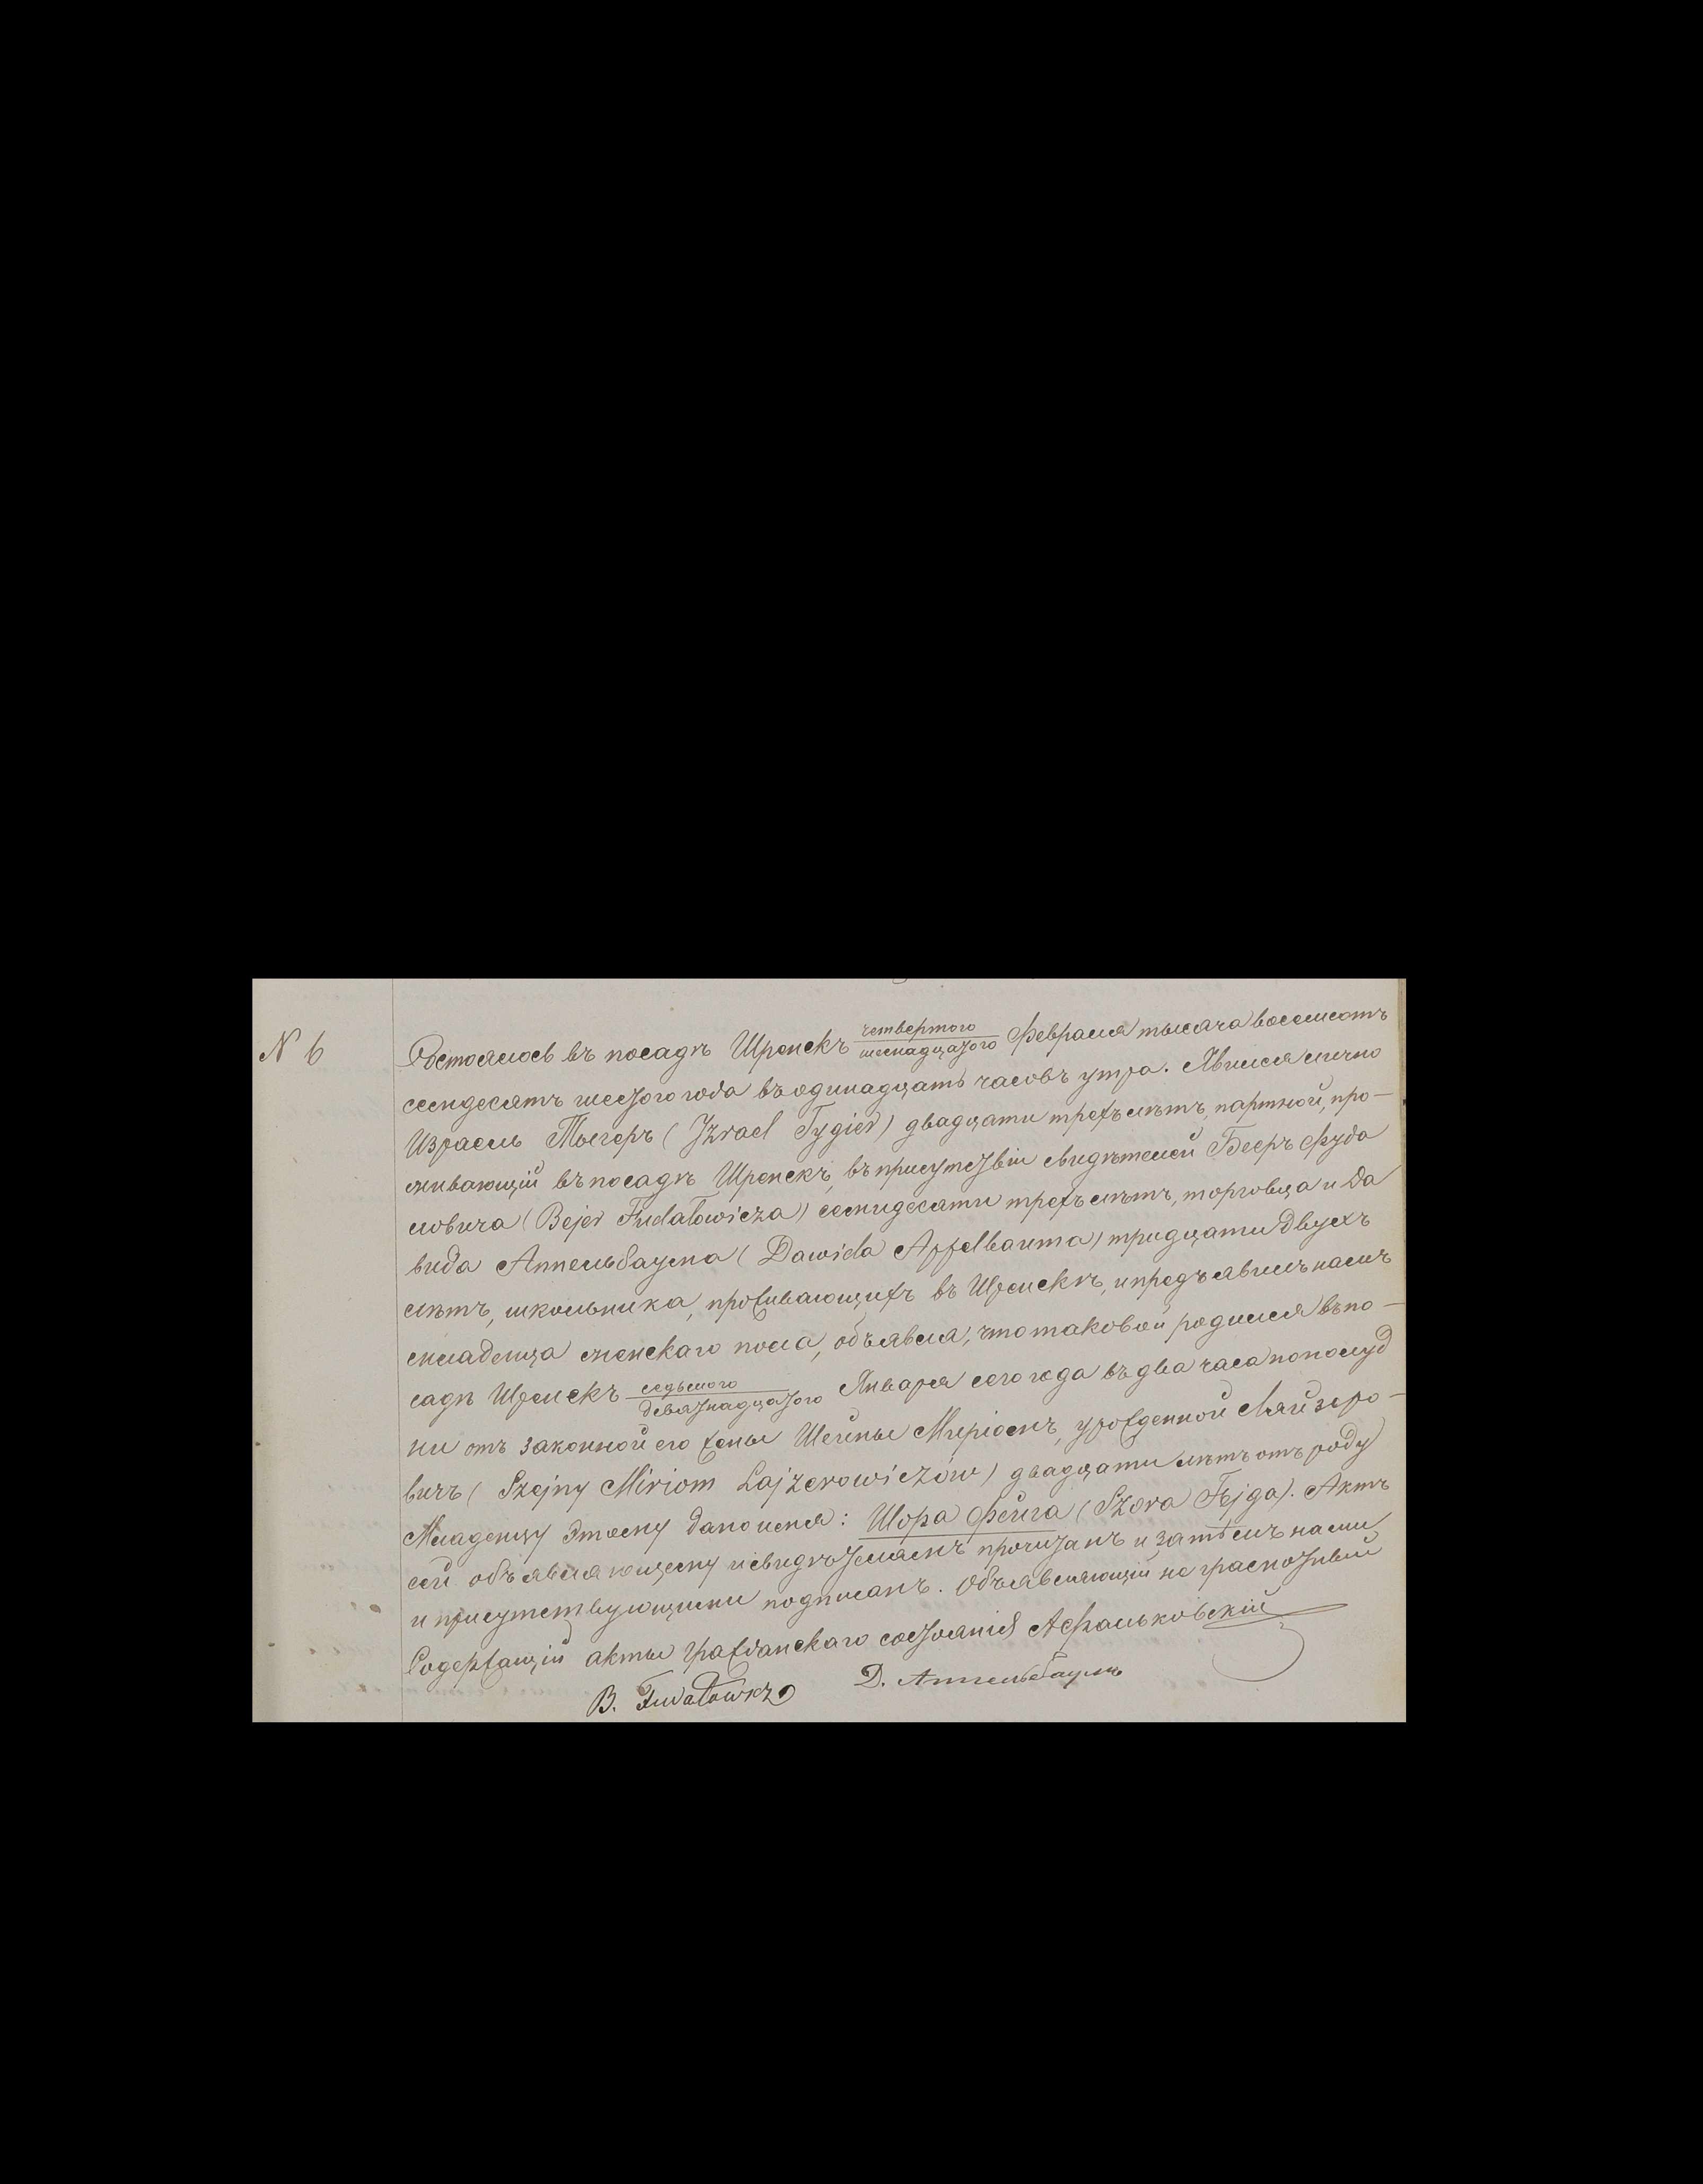 N 6
Состоялось въ посадѣ Шренскъ четвертого/шеснадцатого Февраля тысяча восемсотъ
семдесятъ шестого года въ одинадцать часовъ утра. Явился лично
Израель Тыгеръ (Izrael Tygier) двадцати трехъ лѣтъ, партной, про-
живающій въ посадѣ Шренскъ, въ присутствіи свидѣтелей Бееръ Фуда
ловича (Bejer Fudałowicza) семидесяти трехъ лѣтъ, торговца и Да
вида Аппельбаума (Dawida Apfelbauma) тридцати двухъ
лѣтъ, школьника, проживающихъ въ Шренскѣ, и предъявилъ намъ
младенца женскаго пола, объявля, что таковой родился въ по-
садѣ Шренскъ седьмого/девятнадцатого Января сего года въ два часа пополуд
ни отъ законной его жены Шейны Миріомъ, урожденной Ляйзеро-
вичъ (Szejny Miriom Lajzerowiczów) двадцати лѣтъ отъ роду
Младенцу этому дано имя: Шора Фейга (Szora Fejga). Актъ
сей объявляющему и свидѣтелямъ прочитанъ и затѣмъ нами
и присутствующими подписанъ. Объявляющій не
Содержащій акты гражданскаго состоянія
B. Fudałowicz Д. Аппельбаумъ